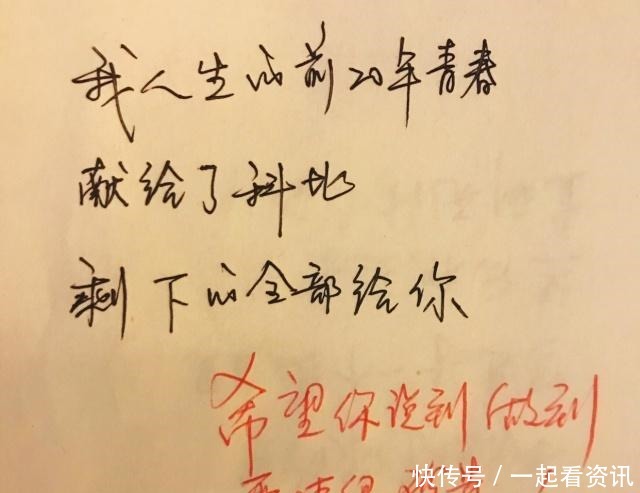 我人生的前20年青春
献给了科比
剩下的全部给你
希望你说到做到
快传号/一起看资讯